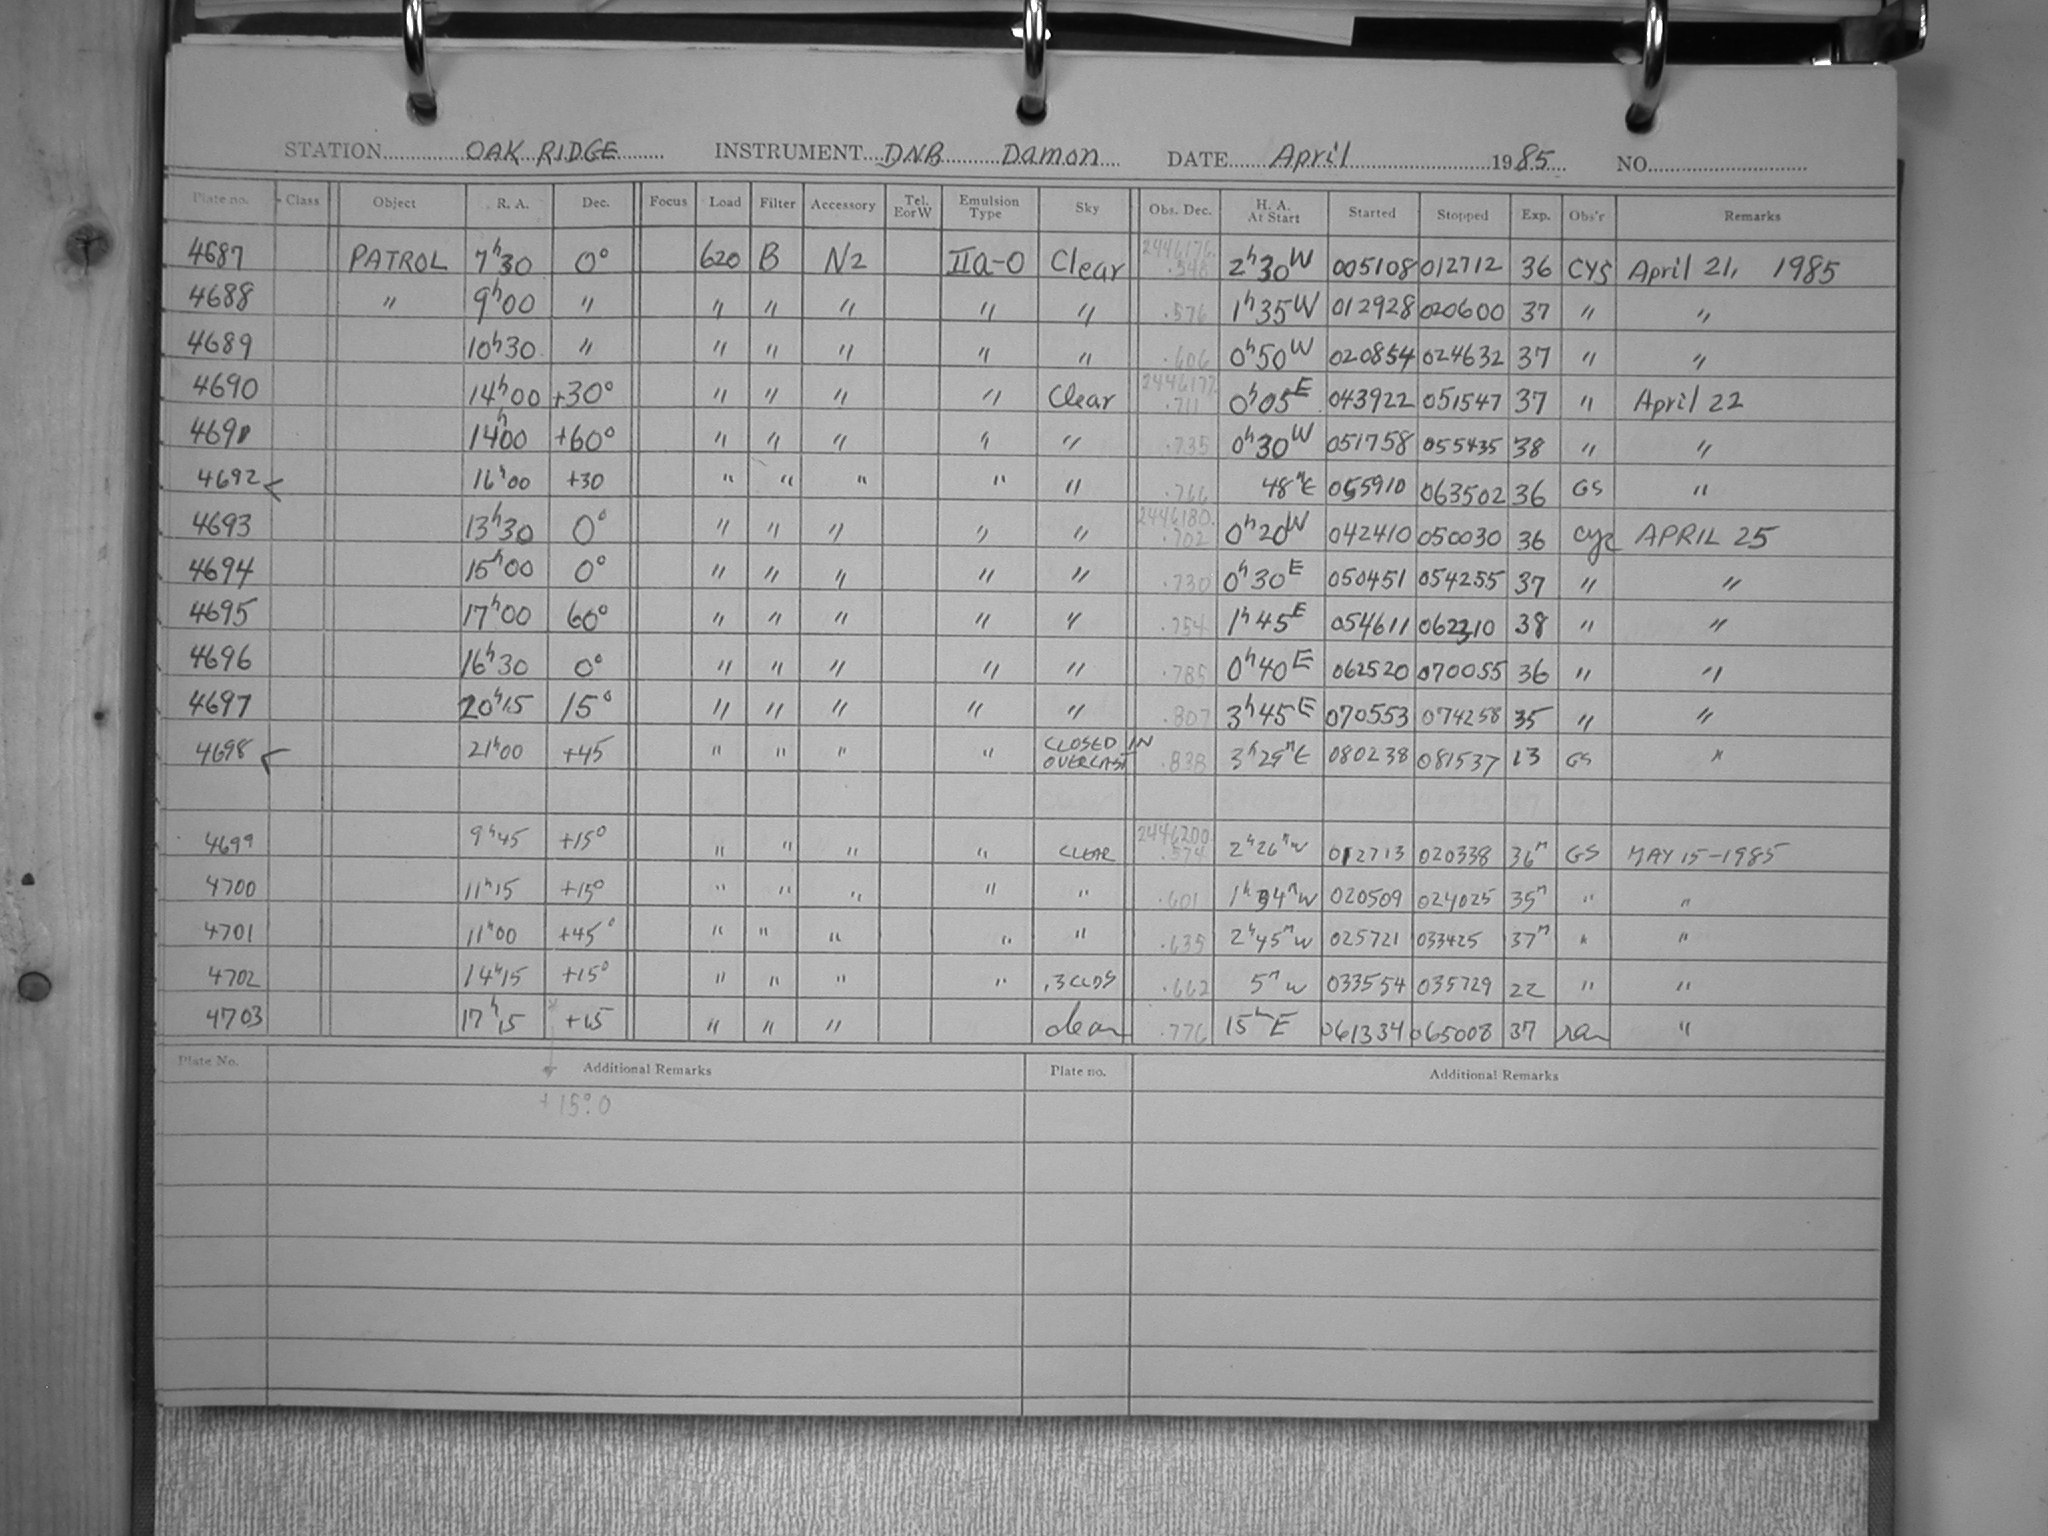 STATION OAK RIDGE INSTRUMENT DNB Damon DATE April 1985 NO.
Plate no. Class Object R. A. Dec. Focus Load Filter Accessory Tel. EorW Emulsion Type Sky Obs. Dec. H. A. At Start Started Stopped Exp. Obs'r Remarks
4687 PATROL 7h30 0° 620 B N2 IIa-O Clear 2446176. .548 2h30W 005108 012712 36 CYS April 21, 1985
4688 " 9h00 " " " " " " .576 1h35W 012928 020600 37 " "
4689 10h30 " " " " " " .606 0h50W 020854 024632 37 " "
4690 14h00 +30° " " " " Clear 2446177. .711 0h05E 043922 051547 37 " April 22
4691 14h00 +60° " " " " " .735 0h30W 051758 055435 38 " "
4692 < 16h00 +30 " " " " " .766 48mE 055910 063502 36 GS "
4693 13h30 0° " " " " " 2446180. .702 0h20W 042410 050030 36 APRIL 25
4694 15h00 0° " " " " " .730 0h30E 050451 054255 37 " "
4695 17h00 60° " " " " " .754 1h45E 054611 38 " "
4696 16h30 0° " " " " " .785 0h40E 062520 070055 36 " "
4697 20h15 15° " " " " " .807 3h45E 070553 074258 35 " "
4698 < 21h00 +45 " " " " CLOSED IN OVERCAST .838 3h29mE 080238 081537 13 GS "
4699 9h45 +15° " " " " CLEAR 2446200. .574 2h26mW 012713 020338 36m GS MAY 15-1985
4700 11h15 +15° " " " " " .601 1h34mW 020509 024025 35m " "
4701 11h00 +45° " " " " " .635 2h45mW 025721 033425 37m " "
4702 14h15 +15° " " " " .3 CLDS .662 5mW 033554 035729 22 " "
4703 17h15 +15 " " " clear .776 15mE 061334 065008 37 "
Plate No. Additional Remarks Plate no. Additional Remarks
+15°.0